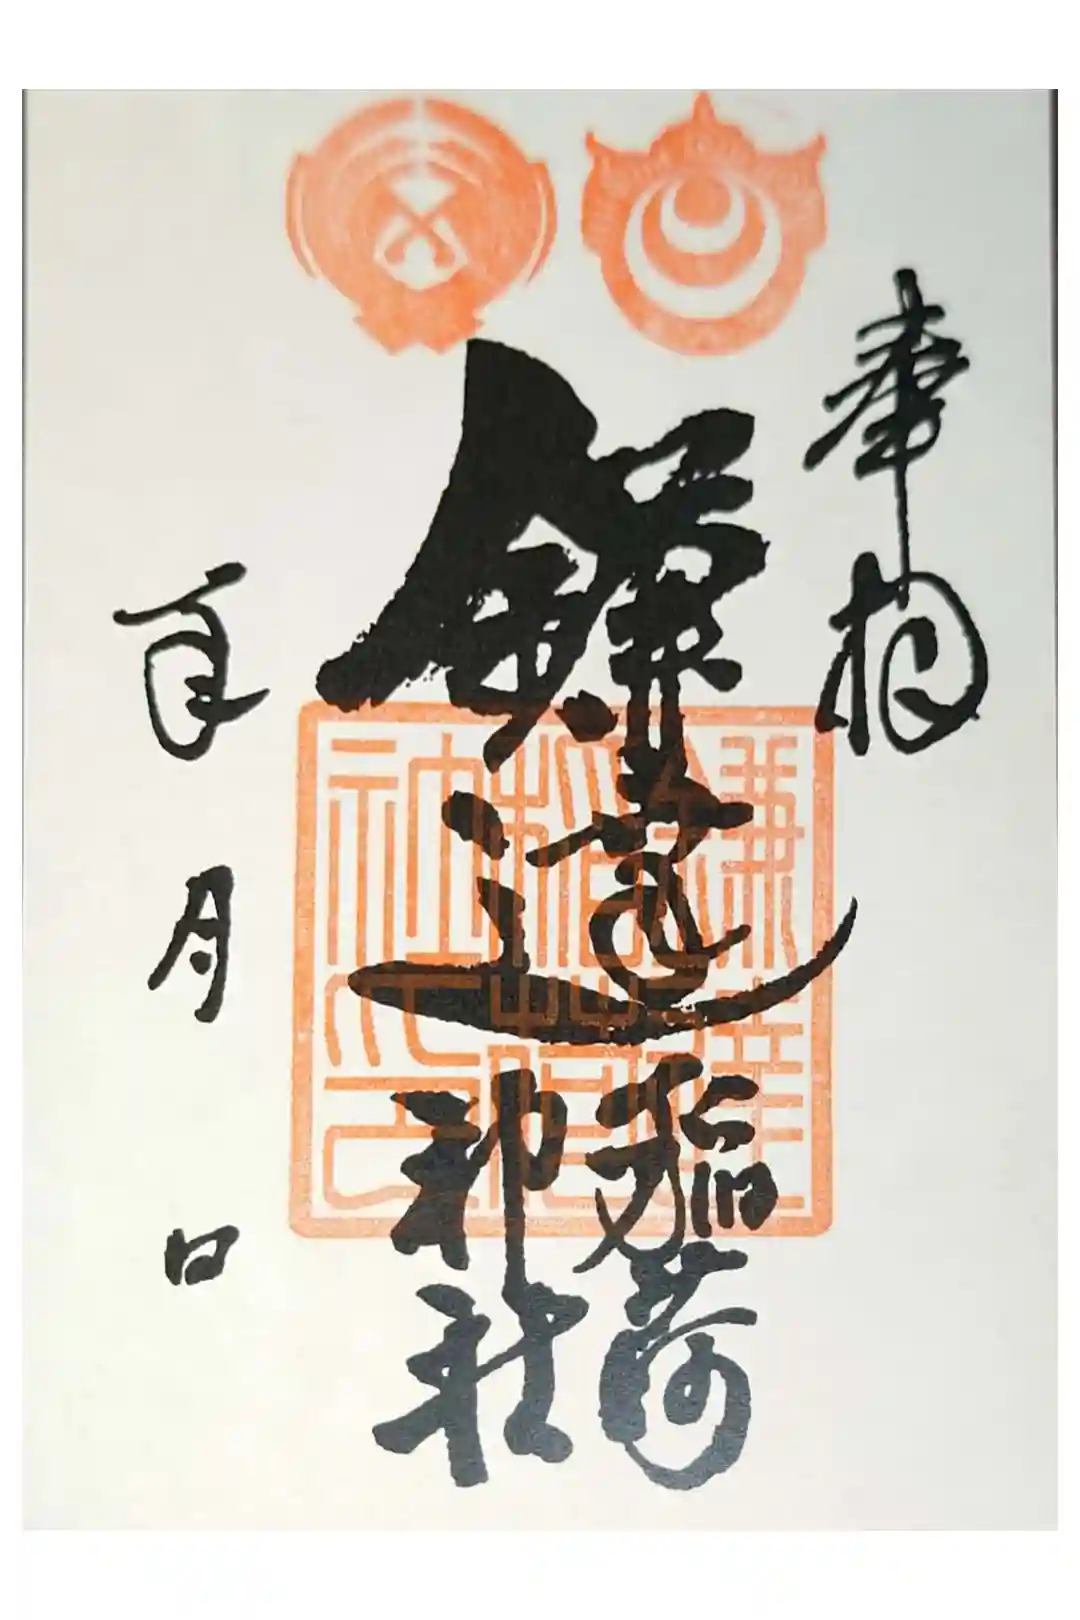 奉拝
鎌達稲荷
神社
年 月 日
鎌達
稲荷
社印